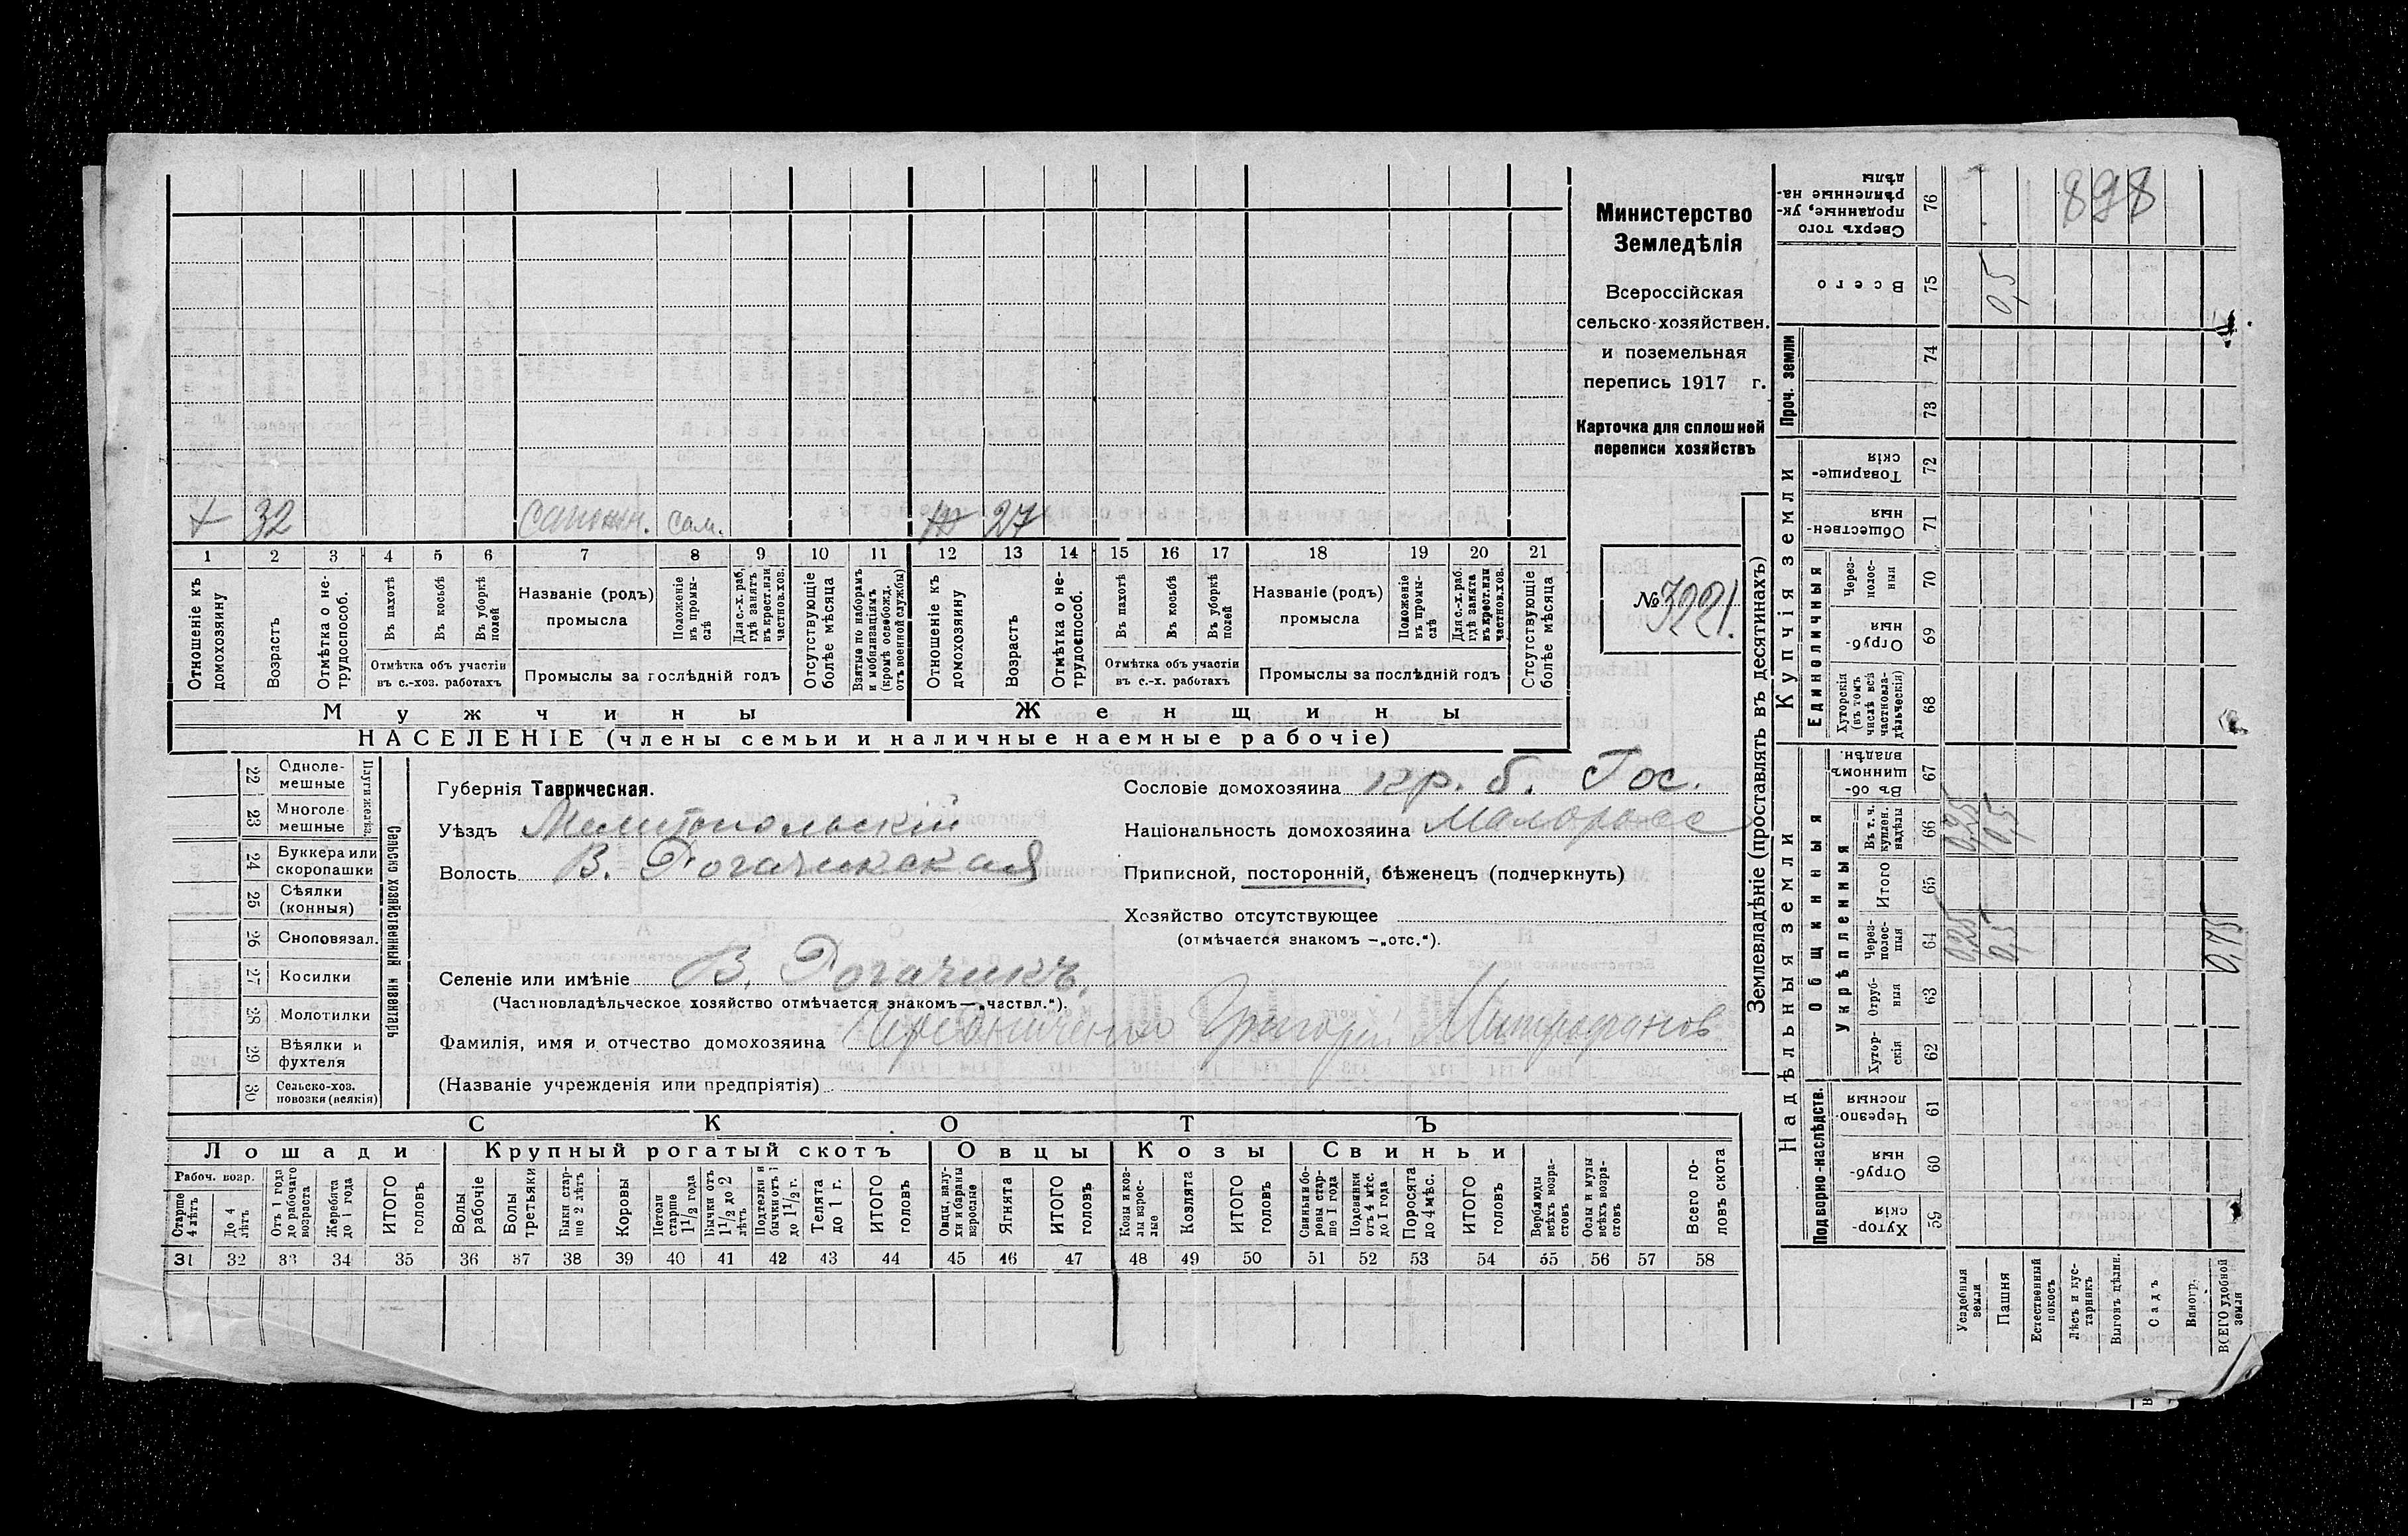 Министерство
Земледѣлія
Всероссійская
сельско-хозяйствен.
и поземельная
перепись 1917 г.
Карточка для сплошной
переписи хозяйствъ
№ 3221.
х 32 сапожн. сам. ж 27
1 2 3 4 5 6 7 8 9 10 11 12 13 14 15 16 17 18 19 20 21
Отношеніе къ домохозяину
Возрастъ
Отмѣтка о нетрудоспособ.
Въ пахотѣ
Въ косьбѣ
Въ уборкѣ полей
Отмѣтка объ участіи въ с.-хоз. работахъ
Названіе (родъ) промысла
Положеніе въ промыслѣ
Для с.-х. раб. гдѣ занятъ въ крест. или частнов. хоз.
Промыслы за послѣдній годъ
Отсутствующіе болѣе мѣсяца
Взятые по наборамъ и мобилизаціямъ (кромѣ освобожд. отъ военной службы)
Отношеніе къ домохозяину
Возрастъ
Отмѣтка о нетрудоспособ.
Въ пахотѣ
Въ косьбѣ
Въ уборкѣ полей
Отмѣтка объ участіи въ с.-х. работахъ
Названіе (родъ) промысла
Положеніе въ промыслѣ
Для с.-х. раб. гдѣ занята въ крест. или частнов. хоз.
Промыслы за послѣдній годъ
Отсутствующіе болѣе мѣсяца
Мужчины Женщины
НАСЕЛЕНІЕ (члены семьи и наличные наемные рабочіе)
Сельско хозяйственный инвентарь
Плуги желѣз.
22 Однолемешные
23 Многолемешные
24 Буккера или скоропашки
25 Сѣялки (конныя)
26 Сноповязал.
27 Косилки
28 Молотилки
29 Вѣялки и фухтеля
30 Сельско-хоз. повозки (всякія)
Губернія Таврическая.
Уѣздъ Мелитопольскій
Волость В. Рогачикская
Сословіе домохозяина кр. б. Гос.
Національность домохозяина Малоросс
Приписной, посторонній, бѣженецъ (подчеркнуть)
Хозяйство отсутствующее
(отмѣчается знакомъ —„отс.“).
Селеніе или имѣніе В. Рогачикъ.
(Частновладѣльческое хозяйство отмѣчается знакомъ—„частвл.“).
Фамилія, имя и отчество домохозяина Григорій Митрофанов
(Названіе учрежденія или предпріятія)
СКОТЪ
Лошади Крупный рогатый скотъ Овцы Козы Свиньи
Рабоч. возр.
Старше 4 лѣтъ
До 4 лѣтъ
Отъ 1 года до рабочаго возраста
Жеребята до 1 года
ИТОГО головъ
Волы рабочіе
Волы третьяки
Быки старше 2 лѣтъ
Коровы
Нетели старше 1 1/2 года
Бычки отъ 1 1/2 до 2 лѣтъ
Подтелки и бычки отъ 1 до 1 1/2 г.
Телята до 1 г.
ИТОГО головъ
Овцы, валухи и бараны взрослые
Ягнята
ИТОГО головъ
Козы и козлы взрослые
Козлята
ИТОГО головъ
Свиньи и боровы старше 1 года
Подсвинки отъ 4 мѣс. до 1 года
Поросята до 4 мѣс.
ИТОГО головъ
Верблюды всѣхъ возрастовъ
Ослы и мулы всѣхъ возрастовъ
Всего головъ скота
31 32 33 34 35 36 37 38 39 40 41 42 43 44 45 46 47 48 49 50 51 52 53 54 55 56 57 58
Землевладѣніе (проставлять въ десятинахъ)
Надѣльныя земли Купчія земли Проч. земли
Подворно-наслѣдств. Общинныя Единоличныя
Укрѣпленныя
59 Хуторскія
60 Отрубныя
61 Черезполосныя
62 Хуторскія
63 Отрубныя
64 Черезполосныя 0,25 0,5 0,75
65 Итого
66 Въ т. ч. куплен. надѣлы 0,25 0,5
67 Въ общинномъ владѣн.
68 Хуторскія (въ томъ числѣ всѣ частновладѣльческія)
69 Отрубныя
70 Черезполосныя
71 Общественныя
72 Товарищескія
73
74
75 Всего 0,5
76 Сверхъ того проданные, укрѣпленные надѣлы
898
Усадебныя земли
Пашня
Естественный покосъ
Лѣсъ и кустарникъ
Выгонъ цѣлин.
Садъ
Виногр.
ВСЕГО удобной земли